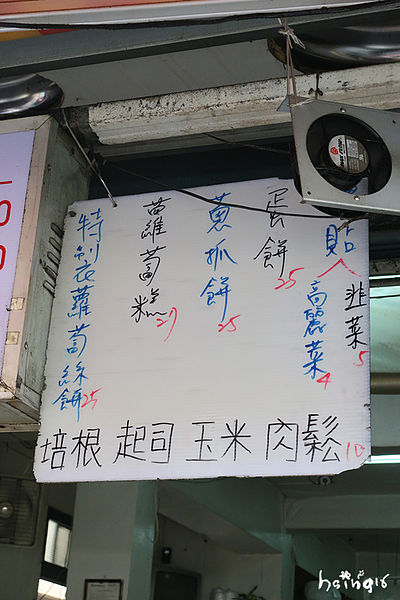 貼
韭菜 5
高麗菜 4
蛋餅 25
蔥抓餅 25
蘿蔔糕 27
特製蘿蔔絲餅 25
培根 起司 玉米 肉鬆 10
hsing16